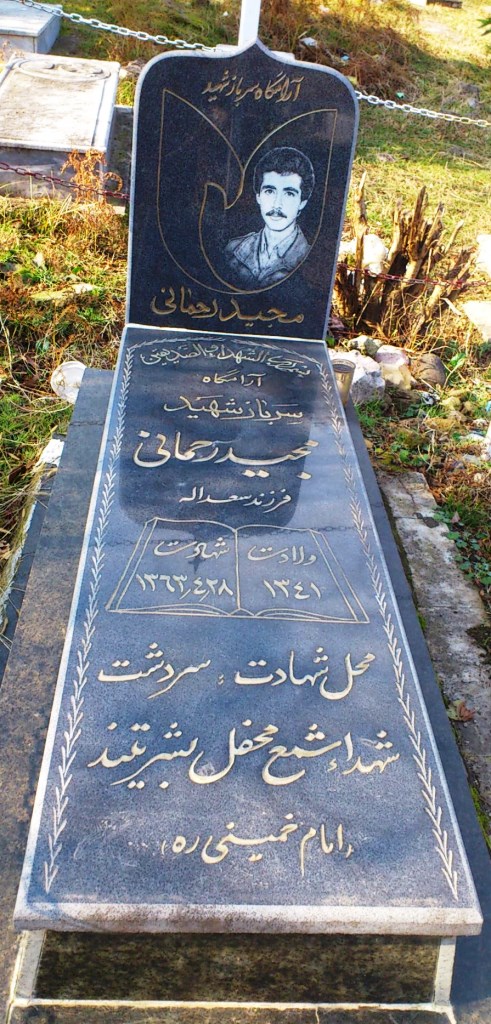 آرامگاه سرباز شهید
مجید رحمانی
آرامگاه
سرباز شهید
مجید رحمانی
فرزند سعداله
ولادت شهادت
۱۳۴۱ ۱۳۶۳٫۴٫۲۸
محل شهادت : سردشت
شهداء شمع محفل بشریتند
(امام خمینی ره)